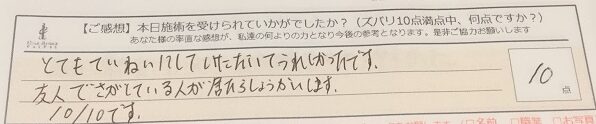 【ご感想】本日施術を受けられていかがでしたか？（ズバリ10点満点中、何点ですか？）
あなた様の率直な感想が、私達の何よりの力となり今後の参考となります。是非ご協力お願いします
とてもていねいにしていただいてうれしかったです。
友人でさがしている人が居たらしょうかいします。
10/10です。
10
点